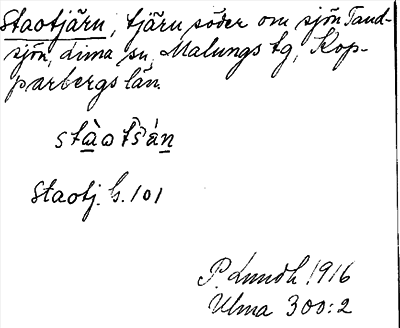 Staotjärn, tjärn söder om sjön Tand-
sjön, Lima sn, Malungs tg, Kop-
parbergs län.
stàotšán
Staotj. h. 101
P. Lundh 1916
Ulma 300:2